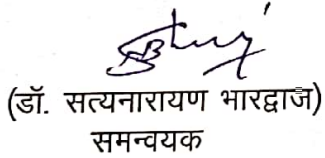 (डॉ. सत्यनारायण भारद्वाज)
समन्वयक